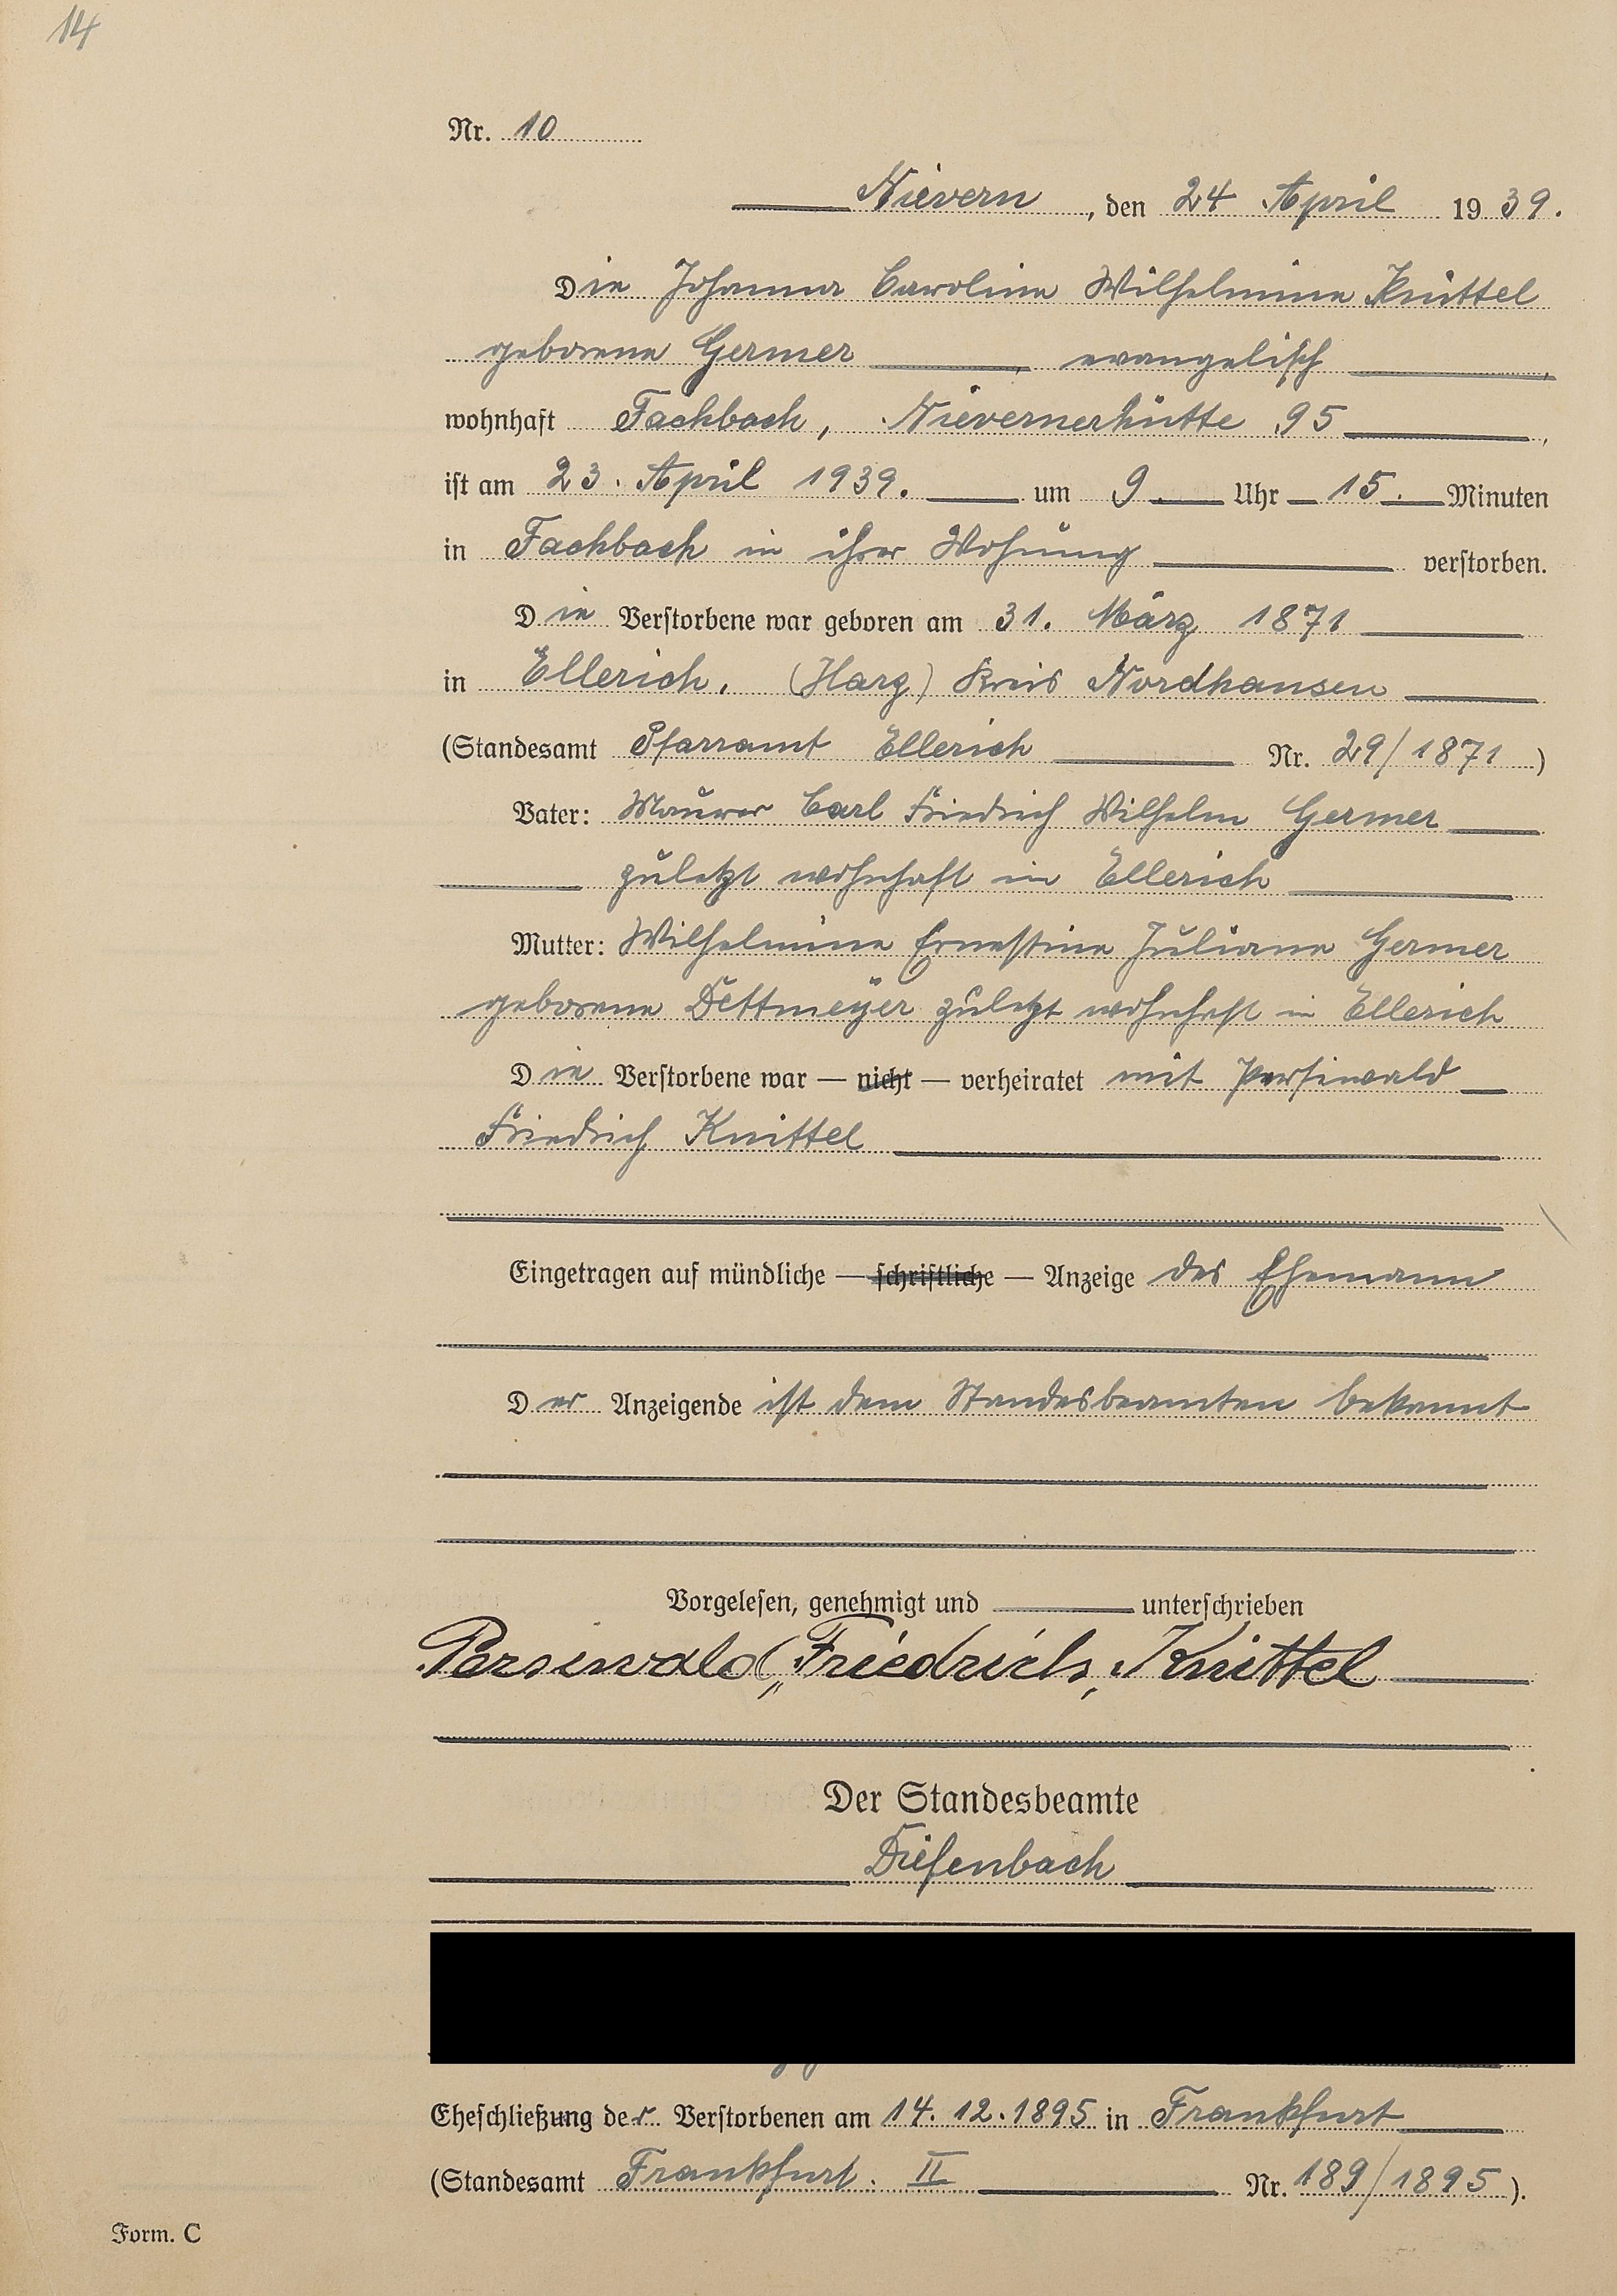 14
Nr. 10
Nievern, den 24 April 1939.
Die Johanna Caroline Wilhelmine Knittel
geborene Germer, evangelisch,
wohnhaft Fachbach, Nievernerhütte 95,
ist am 23. April 1939. um 9 Uhr 15. Minuten
in Fachbach in ihrer Wohnung verstorben.
Die Verstorbene war geboren am 31. März 1871
in Ellerich. (Harz) Kreis Nordhausen
(Standesamt Pfarramt Ellerich Nr. 29/1871)
Vater: Maurer Carl Friedrich Wilhelm Germer
zuletzt wohnhaft in Ellerich
Mutter: Wilhelmine Ernestine Juliane Germer
geborene Dettmeÿer zuletzt wohnhaft in Ellerich
Die Verstorbene war — nicht — verheiratet mit Persiwald
Friedrich Knittel
Eingetragen auf mündliche — schriftliche — Anzeige des Ehemann
Der Anzeigende ist dem Standesbeamten bekannt
Vorgelesen, genehmigt und unterschrieben
Persiwald, Friedrich, Knittel
Der Standesbeamte
Diefenbach
Eheschließung der Verstorbenen am 14.12.1895 in Frankfurt
(Standesamt Frankfurt. II Nr. 189/1895).
Form. C